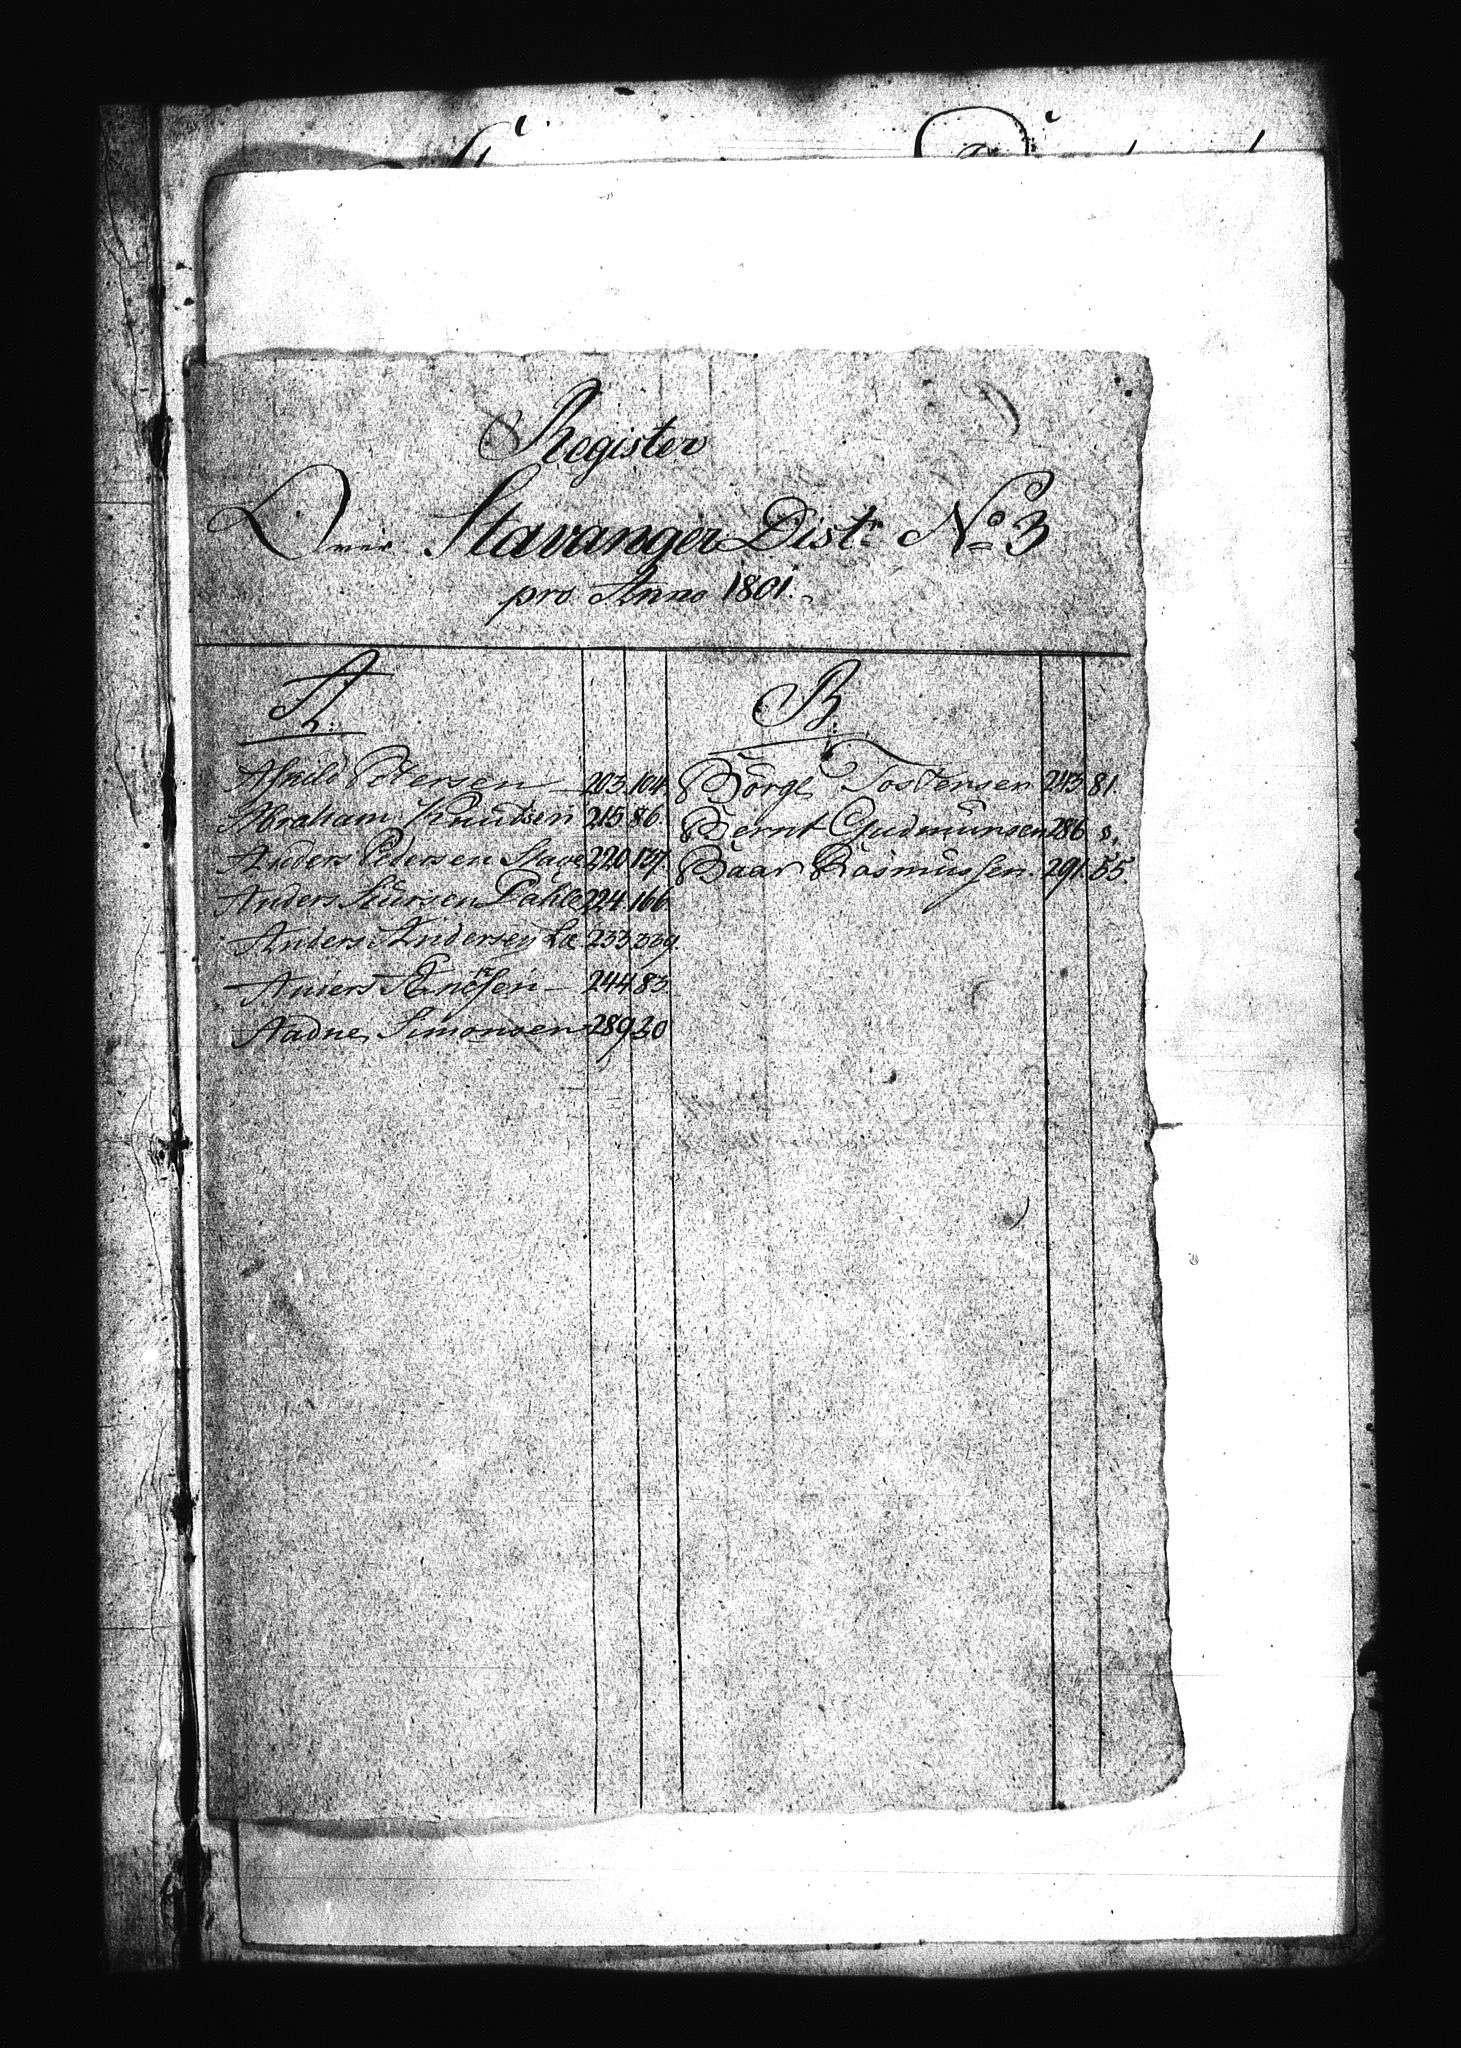 Register
Over Stavanger Distr No 3
pro Anno 1801.
A.
Petersen 203. 104
Abraham Knudsen 215 86
Anders Pedersen Stave 220. 137
Anders Siursen Dahle 224. 166
Anders Andersen 233. 339.
Anders Knudsen 244. 83
Aadne Simonsen 289 20
B.
Börge Tostensen 243. 81.
Bernt Gudmunsen 286 8.
Baar Rasmussen. 291. 55.